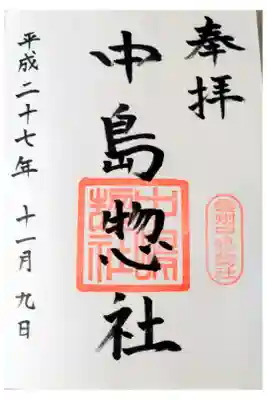 奉拝
中島惣社
平成二十七年 十一月 九日